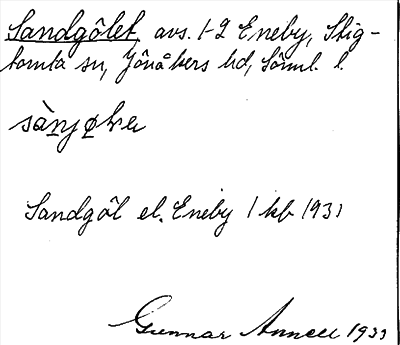 Sandgölet, avs. 1-2 Eneby, Stig-
tomta sn, Jönåkers hd, Söml. l.
Sandgöl el. Eneby 1 kb 1931
Gunnar Annell 1933